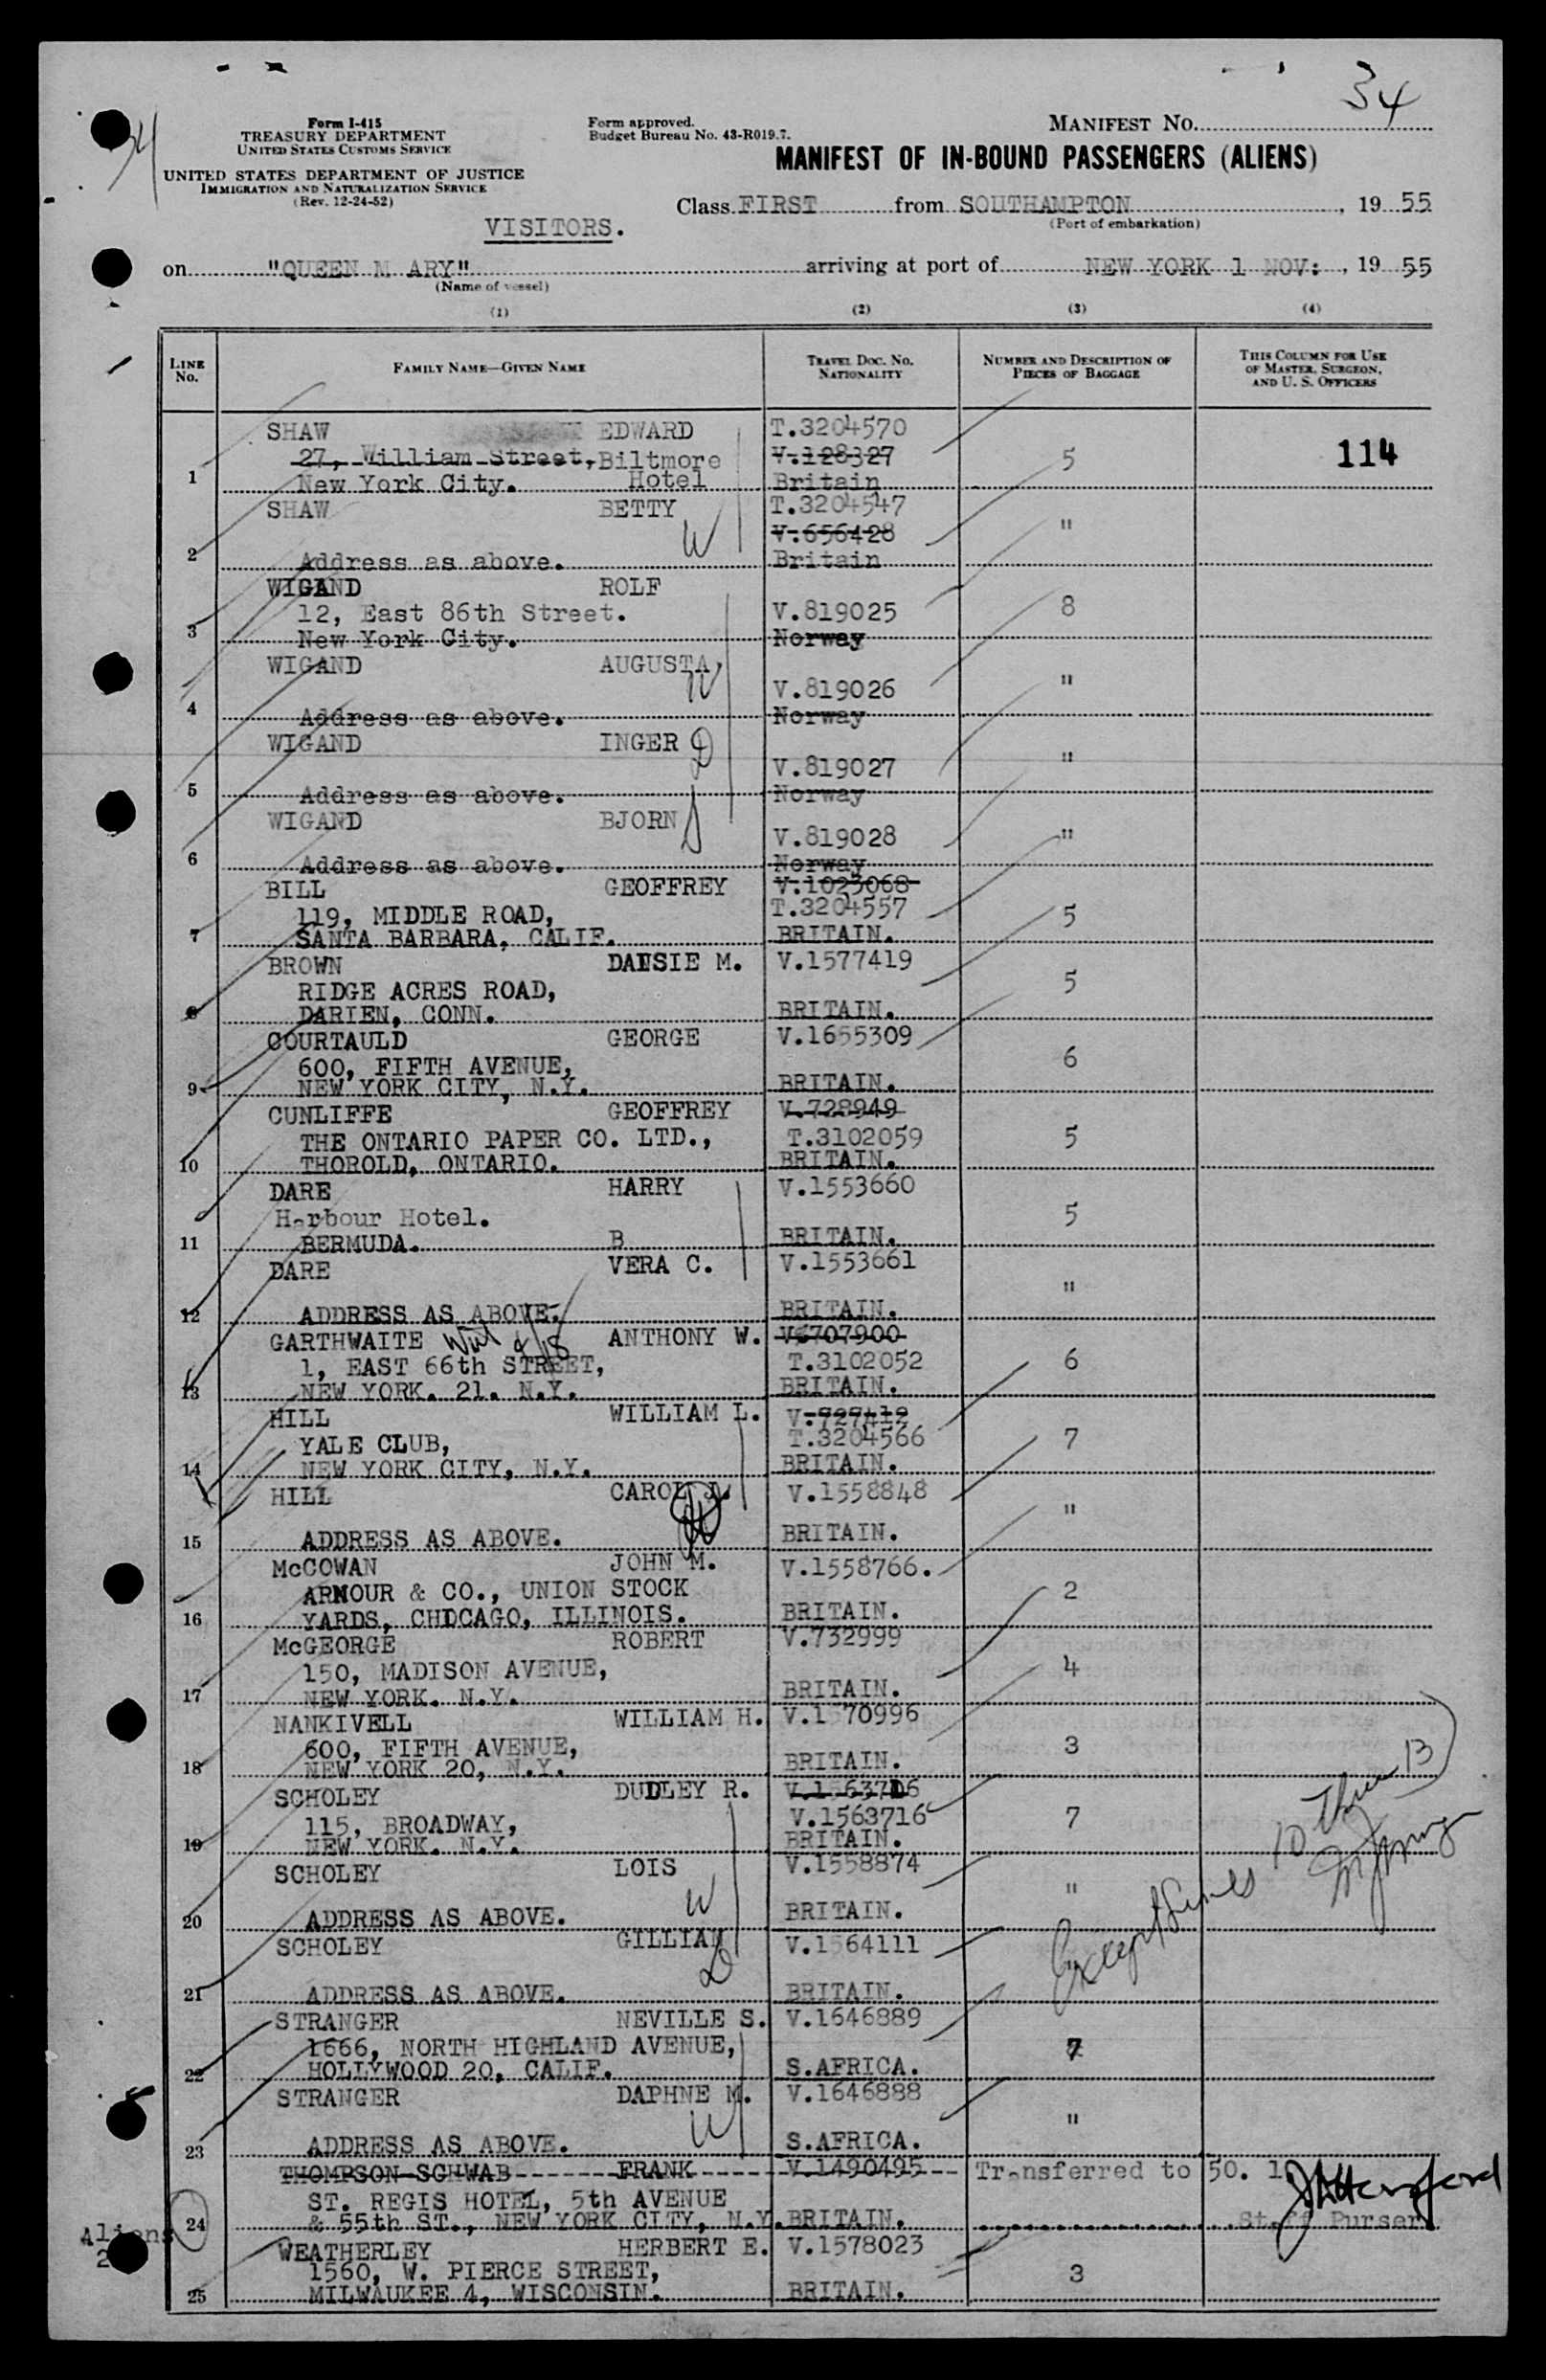 34
Form I-415
TREASURY DEPARTMENT
UNITED STATES CUSTOMS SERVICE
UNITED STATES DEPARTMENT OF JUSTICE
IMMIGRATION AND NATURALIZATION SERVICE
(Rev. 12-24-52)
Form approved.
Budget Bureau No. 43-R019.7.
MANIFEST No. 34
MANIFEST OF IN-BOUND PASSENGERS (ALIENS)
Class FIRST from SOUTHAMPTON, 19 55
(Port of embarkation)
VISITORS.
on "QUEEN M ARY" arriving at port of NEW YORK 1 NOV:, 19 55
(Name of vessel)
(1) (2) (3) (4)
LINE No. FAMILY NAME—GIVEN NAME TRAVEL DOC. No. NATIONALITY NUMBER AND DESCRIPTION OF PIECES OF BAGGAGE THIS COLUMN FOR USE OF MASTER, SURGEON, AND U. S. OFFICERS
SHAW EDWARD T.3204570
27, William Street, Biltmore V.128327 5 114
1 New York City. Hotel Britain
SHAW BETTY T.3204547
W V.656428 "
2 Address as above. Britain
WIGAND ROLF
12, East 86th Street. V.819025 8
3 New York City. Norway
WIGAND AUGUSTA
W V.819026 "
4 Address as above. Norway
WIGAND INGER D
V.819027 "
5 Address as above. Norway
WIGAND BJORN S
V.819028 "
6 Address as above. Norway
BILL GEOFFREY V.1023068
119, MIDDLE ROAD, T.3204557 5
7 SANTA BARBARA, CALIF. BRITAIN.
BROWN DANSIE M. V.1577419
RIDGE ACRES ROAD, 5
8 DARIEN, CONN. BRITAIN.
COURTAULD GEORGE V.1655309
600, FIFTH AVENUE, 6
9 NEW YORK CITY, N.Y. BRITAIN.
CUNLIFFE GEOFFREY V.728949
THE ONTARIO PAPER CO. LTD., T.3102059 5
10 THOROLD, ONTARIO. BRITAIN.
DARE HARRY V.1553660
Harbour Hotel. 5
11 BERMUDA. B BRITAIN.
DARE VERA C. V.1553661
"
12 ADDRESS AS ABOVE. BRITAIN.
GARTHWAITE ANTHONY W. V.707900
1, EAST 66th STREET, T.3102052 6
13 NEW YORK. 21. N.Y. BRITAIN.
HILL WILLIAM L. V.727412
YALE CLUB, T.3204566 7
14 NEW YORK CITY, N.Y. BRITAIN.
HILL CAROL J. V.1558848
"
15 ADDRESS AS ABOVE. BRITAIN.
McCOWAN JOHN M. V.1558766.
ARMOUR & CO., UNION STOCK 2
16 YARDS, CHICAGO, ILLINOIS. BRITAIN.
McGEORGE ROBERT V.732999
150, MADISON AVENUE, 4
17 NEW YORK. N.Y. BRITAIN.
NANKIVELL WILLIAM H. V.1 70996
600, FIFTH AVENUE, 3
18 NEW YORK 20, N.Y. BRITAIN.
SCHOLEY DUDLEY R. V.1563706
115, BROADWAY, V.1563716 7
19 NEW YORK. N.Y. BRITAIN.
SCHOLEY LOIS V.1558874
W "
20 ADDRESS AS ABOVE. BRITAIN.
SCHOLEY GILLIAN V.1564111
D
21 ADDRESS AS ABOVE. BRITAIN.
Except Lines 10 Thru 13
STRANGER NEVILLE S. V.1646889
1666, NORTH HIGHLAND AVENUE, 7
22 HOLLYWOOD 20, CALIF. S.AFRICA.
STRANGER DAPHNE M. V.1646888
W "
23 ADDRESS AS ABOVE. S.AFRICA.
THOMPSON-SCHWAB FRANK V.1490495 Transferred to 50. 1
ST. REGIS HOTEL, 5th AVENUE
24 & 55th ST., NEW YORK CITY, N.Y. BRITAIN. Staff Purser
Aliens
2
WEATHERLEY HERBERT E. V.1578023
1560, W. PIERCE STREET, 3
25 MILWAUKEE 4, WISCONSIN. BRITAIN.